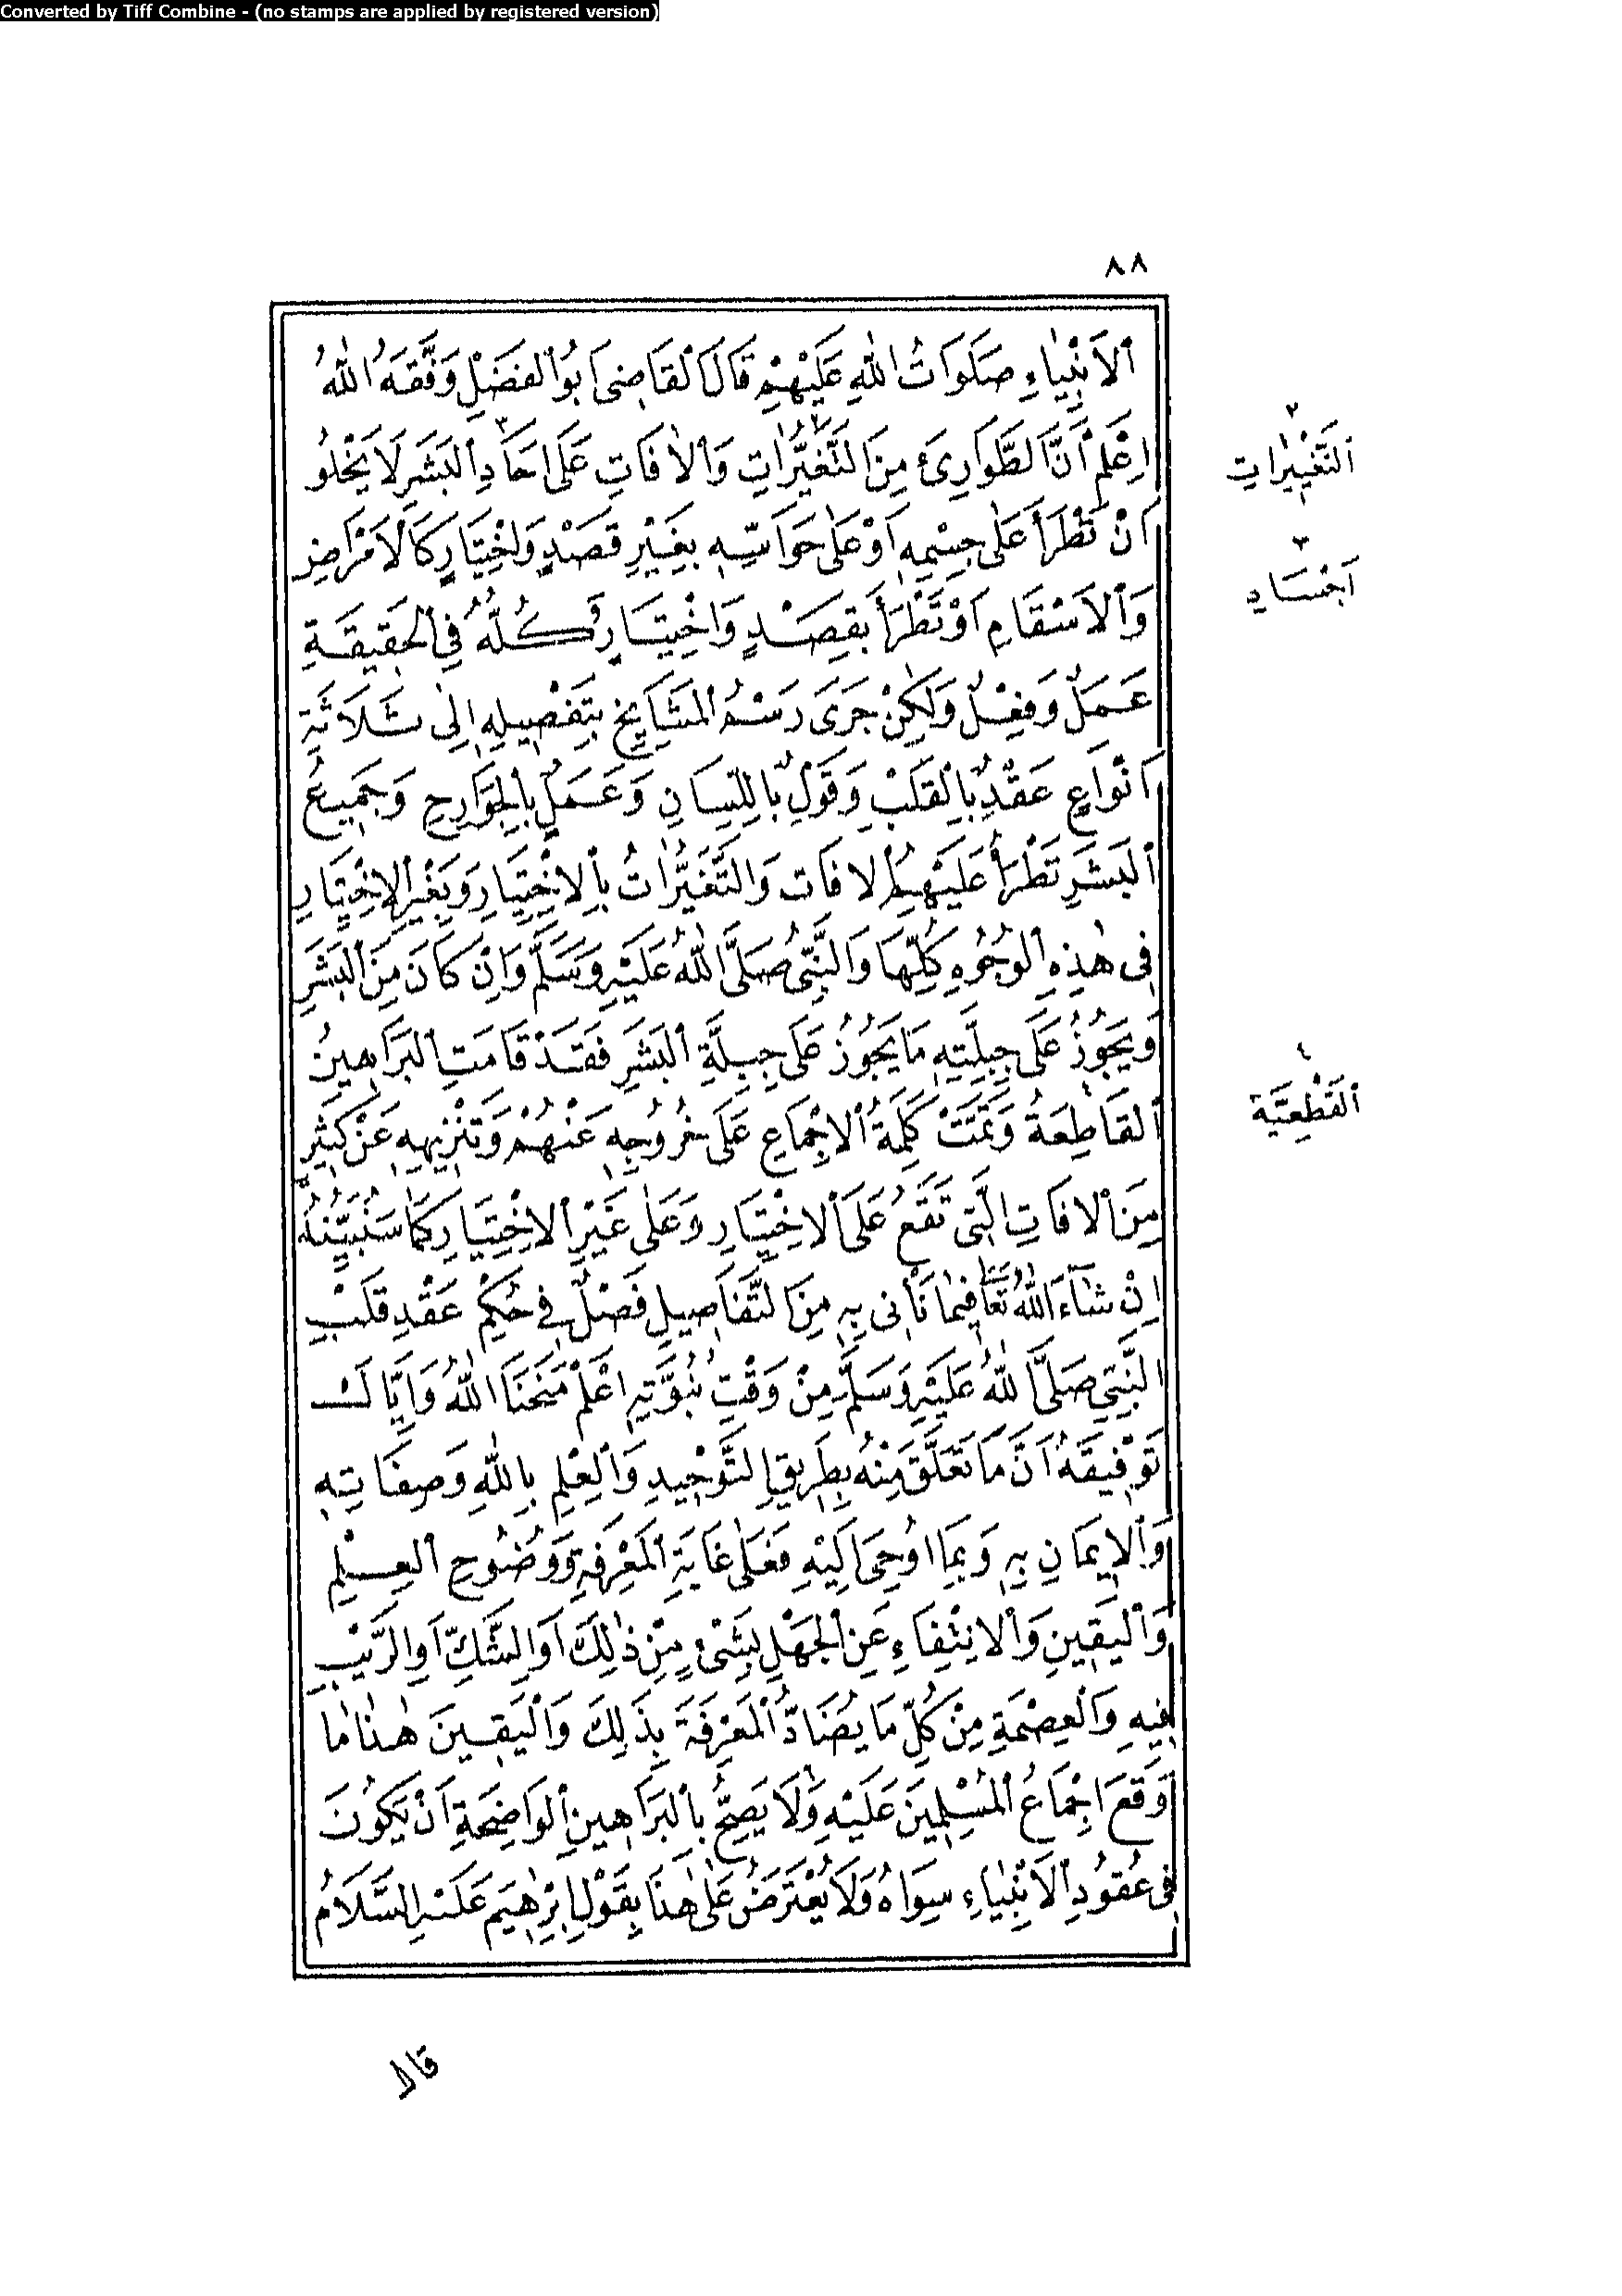 Converted by Tiff Combine - (no stamps are applied by registered version)
٨٨
اَلْاَنْبِيَاءِ صَلَوَاتُ اللّٰهِ عَلَيْهِمْ قَالَ الْقَاضِى اَبُو الْفَضْلِ وَفَّقَهُ اللّٰهُ
اِعْلَمْ اَنَّ الطَّوَارِئَ مِنَ التَّغَيُّرَاتِ وَالْاٰفَاتِ عَلَى اٰحَادِ الْبَشَرِ لَا يَخْلُو
اَنْ تَطْرَأَ عَلٰى جِسْمِهِ اَوْ عَلٰى حَوَاسِّهِ بِغَيْرِ قَصْدٍ وَاخْتِيَارٍ كَالْاَمْرَاضِ
وَالْاَسْقَامِ اَوْ تَطْرَأَ بِقَصْدٍ وَاخْتِيَارٍ وَكُلُّهُ فِى الْحَقِيقَةِ
عَمَلٌ وَفِعْلٌ وَلٰكِنْ جَرَى رَسْمُ الْمَشَايِخِ بِتَفْصِيلِهِ اِلٰى ثَلَاثَةِ
اَنْوَاعٍ عَقْدٌ بِالْقَلْبِ وَقَوْلٌ بِاللِّسَانِ وَعَمَلٌ بِالْجَوَارِحِ وَجَمِيعُ
الْبَشَرِ تَطْرَأُ عَلَيْهِمُ الْاٰفَات وَالتَّغَيُّرَاتُ بِالْاِخْتِيَارِ وَبِغَيْرِ الْاِخْتِيَارِ
فِى هٰذِهِ الْوُجُوهِ كُلِّهَا وَالنَّبِىُّ صَلَّى اللّٰهُ عَلَيْهِ وَسَلَّمَ وَاِنْ كَانَ مِنَ الْبَشَرِ
وَيَجُوزُ عَلَى جِبِلَّتِهِ مَا يَجُوزُ عَلَى جِبِلَّةِ الْبَشَرِ فَقَدْ قَامَتِ الْبَرَاهِينُ
الْقَاطِعَةُ وَتَمَّتْ كَلِمَةُ الْاِجْمَاعِ عَلَى خُرُوجِهِ عَنْهُمْ وَتَنْزِيهِهِ عَنْ كَثِيرٍ
مِنَ الْاٰفَاتِ الَّتِى تَقَعُ عَلَى الْاِخْتِيَارِ وَعَلَى غَيْرِ الْاِخْتِيَارِ كَمَا سَنُبَيِّنُهُ
اِنْ شَاءَ اللّٰهُ تَعَالَى فِيمَا نَأْتِى بِهِ مِنَ التَّفَاصِيلِ فَصْلٌ فِى حُكْمِ عَقْدِ قَلْبِ
النَّبِيِّ صَلَّى اللّٰهُ عَلَيْهِ وَسَلَّمَ مِنْ وَقْتِ نُبُوَّتِهِ اِعْلَمْ مَنَحَنَا اللّٰهُ وَاِيَّاكَ
تَوْفِيقَهُ اَنَّ مَا تَعَلَّقَ مِنْهُ بِطَرِيقِ التَّوْحِيدِ وَالْعِلْمِ بِاللّٰهِ وَصِفَاتِهِ
وَالْاِيمَانِ بِهِ وَبِمَا اُوحِىَ اِلَيْهِ فَعَلٰى غَايَةِ الْمَعْرِفَةِ وَوُضُوحِ الْعِلْمِ
وَالْيَقِينِ وَالْاِنْتِفَاءِ عَنِ الْجَهْلِ بِشَىْءٍ مِنْ ذٰلِكَ اَوِ الشَّكِّ اَوِ الرَّيْبِ
فِيهِ وَالْعِصْمَةِ مِنْ كُلِّ مَا يُضَادُّ الْمَعْرِفَةَ بِذٰلِكَ وَالْيَقِينَ هٰذَا مَا
وَقَعَ اِجْمَاعُ الْمُسْلِمِينَ عَلَيْهِ وَلَا يَصِحُّ بِالْبَرَاهِينِ الْوَاضِحَةِ اَنْ يَكُونَ
فِى عُقُودِ الْاَنْبِيَاءِ سِوَاهُ وَلَا يُعْتَرَضُ عَلٰى هٰذَا بِقَوْلِ اِبْرٰهِيمَ عَلَيْهِ السَّلَامُ
٢
اَلتَّغْيِيرَاتِ
٣
اَجْسَادِ
٤
اَلْقَطْعِيَّة
قال